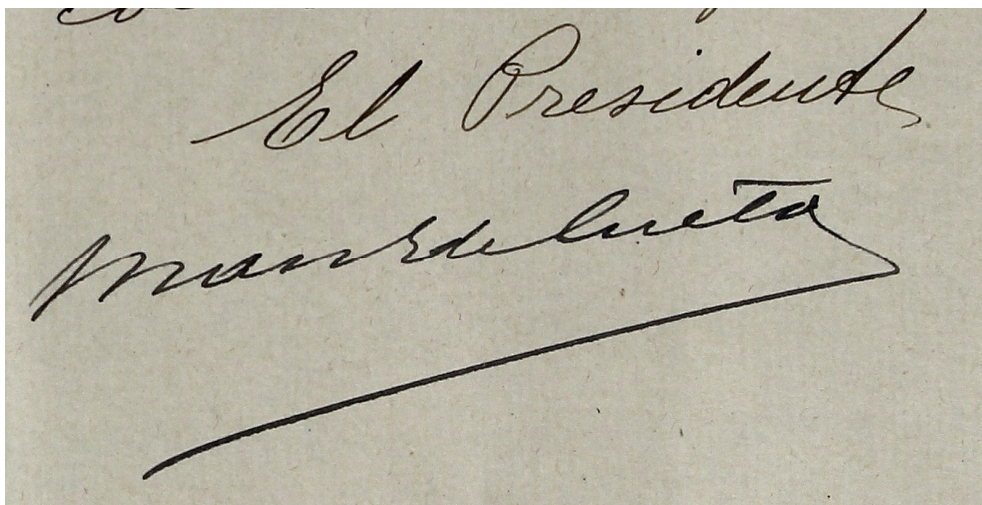 El Presidente
Man. E de Cueta